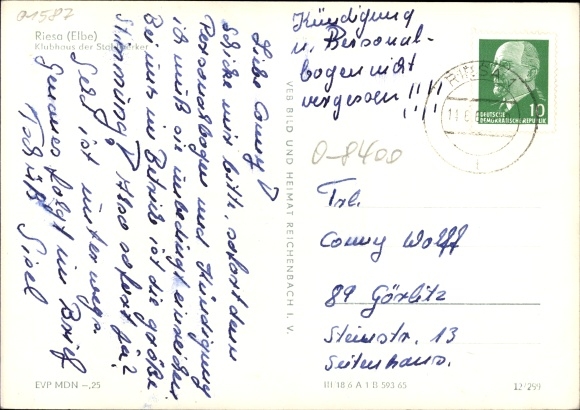 01587
Riesa (Elbe)
Klubhaus der Stahlwerker
Liebe Conny!
Schicke mir bitte sofort den
Personalbogen und Kündigung
ich muß sie unbedingt einreichen
Bei uns im Betrieb ist die größte
Stimmung! Also sofort ja?
Geld ist unterwegs
Genaues folgt im Brief
Gisel
Kündigung
u. Personal-
bogen nicht
vergessen !!!!
10
DEUTSCHE
DEMOKRATISCHE REPUBLIK
O-8400
Frl.
Conny Wolff
89 Görlitz
Steinstr. 13
Seitenhaus.
VEB BILD UND HEIMAT REICHENBACH I. V.
EVP MDN –,25
III 18.6 A 1 B 593 65
12/299